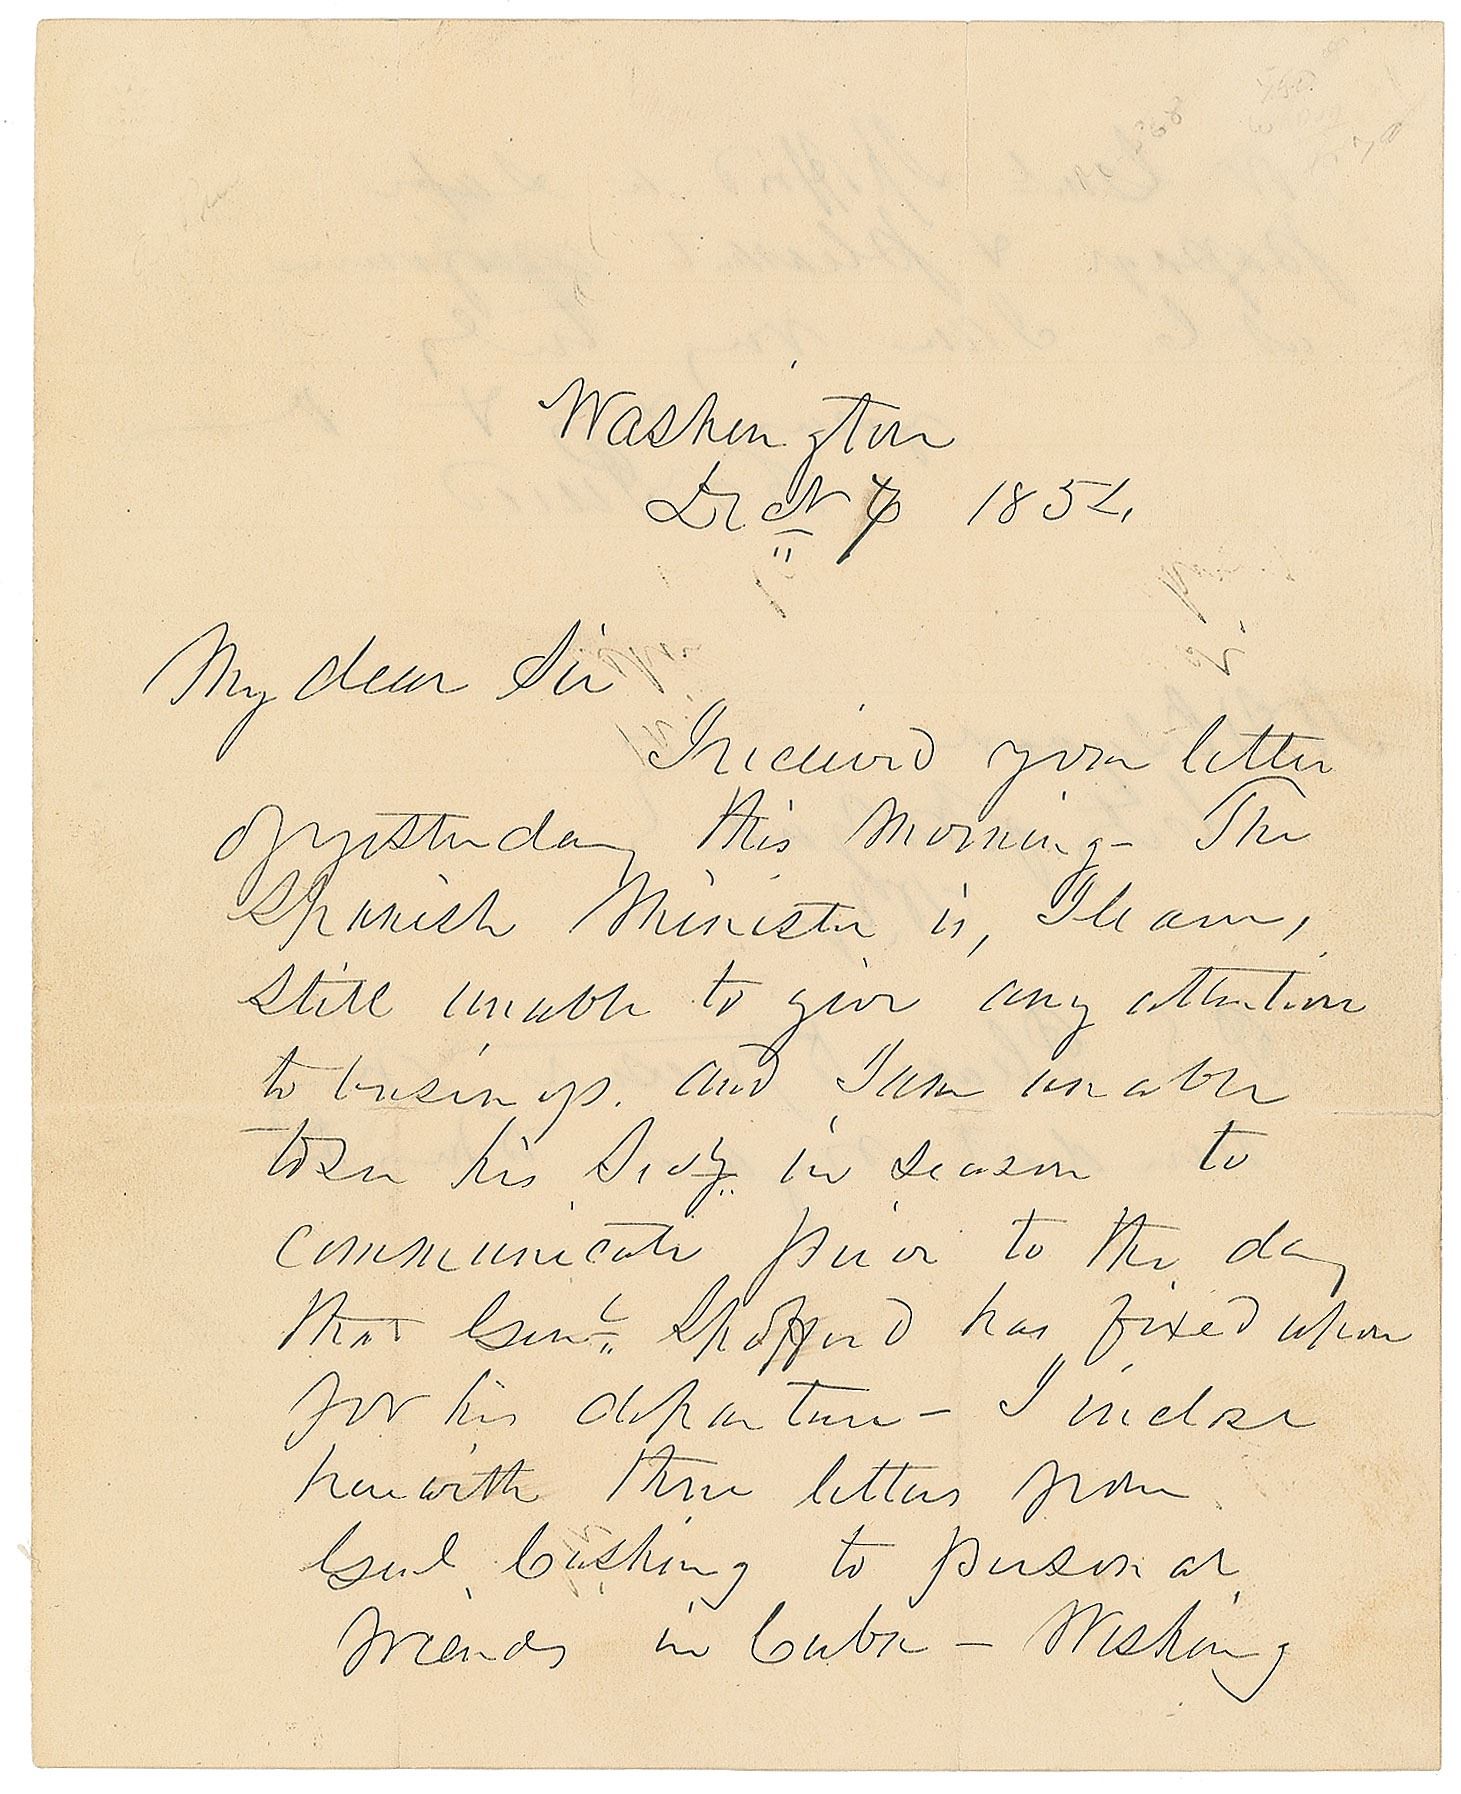 Washington
Decr 1854.
My dear Sir
I received your letter
of yesterday this morning - The
Spanish Minister is, I learn,
still unable to give any attention
to business. and I am unable
to see his Secy in season to
communicate prior to the day
that Genl Spofford has fixed upon
for his departure - I inclose
herewith three letters from
Genl Cushing to personal
friends in Cuba - Wishing